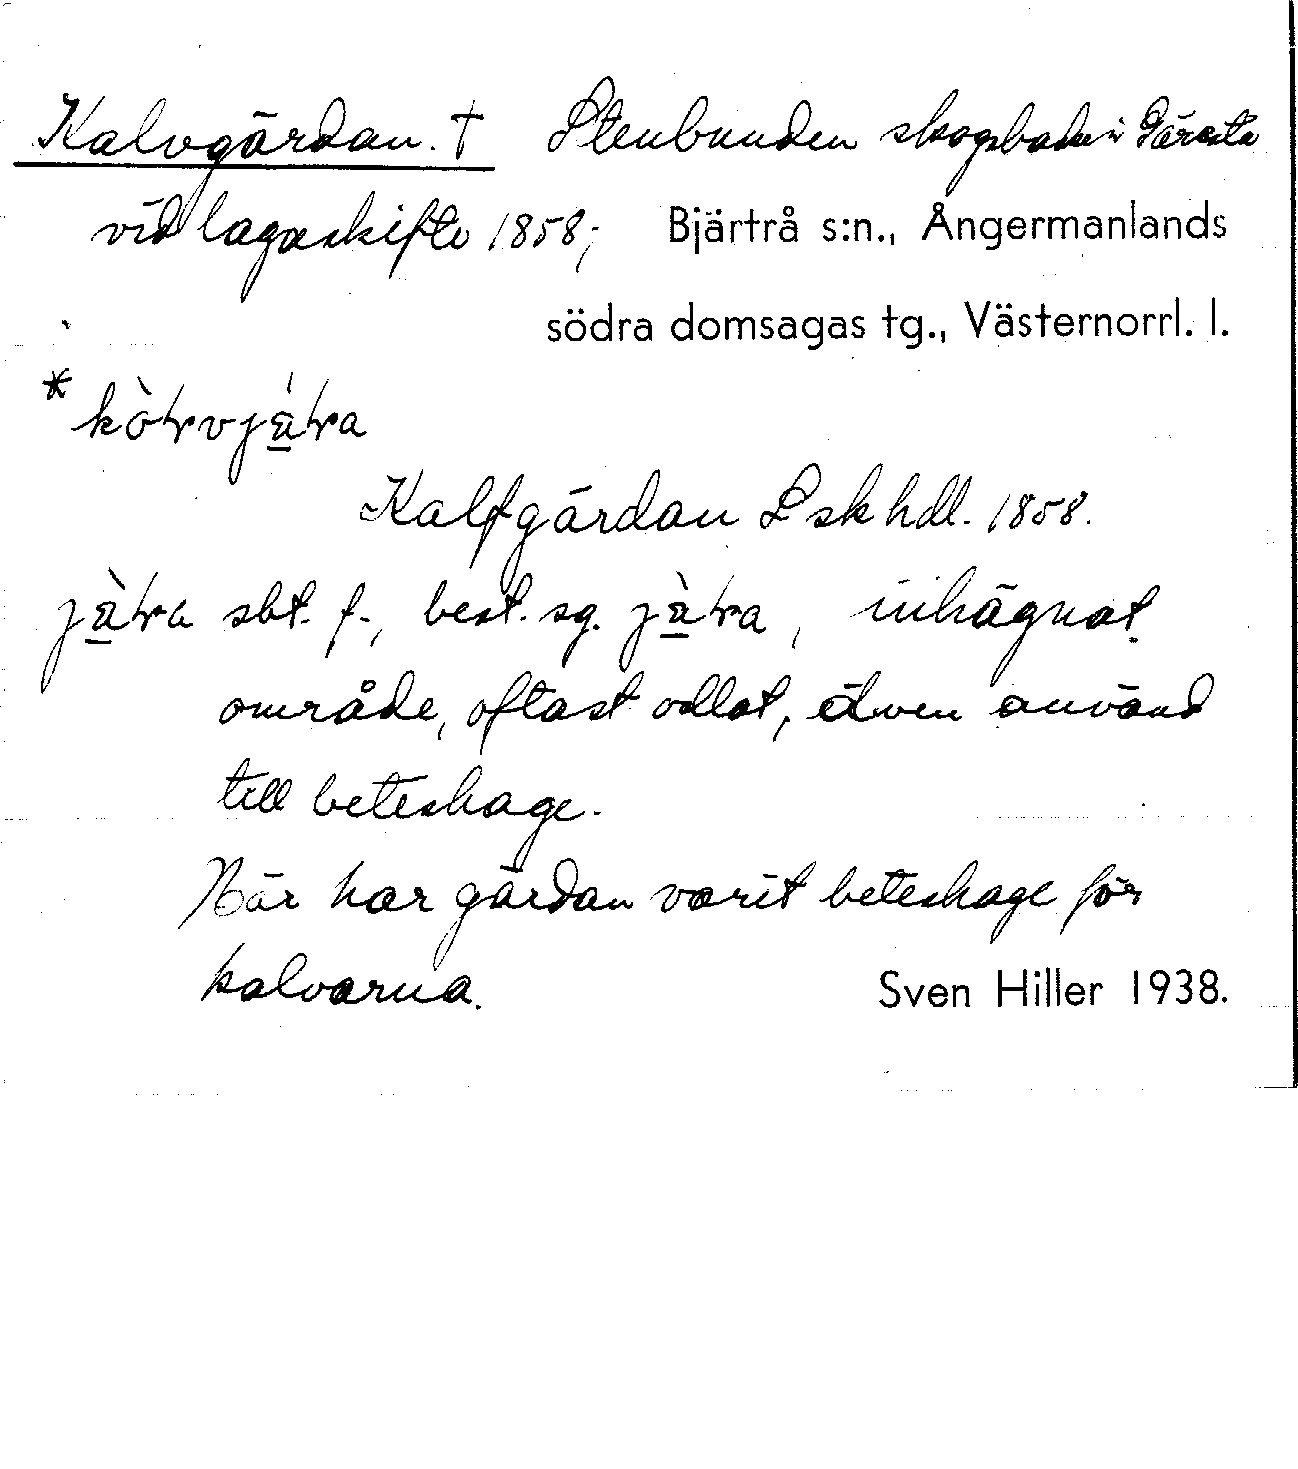 Kalvgärdan. † Stenbunden skogsbacke i Gäresta
vid lagaskifte 1858; Bjärtrå s:n., Ångermanlands
södra domsagas tg., Västernorrl. l.
*
Kalfgärdan L sk hdl. 1858.
sbt. f., best. sg. , inhägnat
område, oftast odlat, även använd
till beteshage.
Här har gärdan varit beteshage för
kalvarna. Sven Hiller 1938.